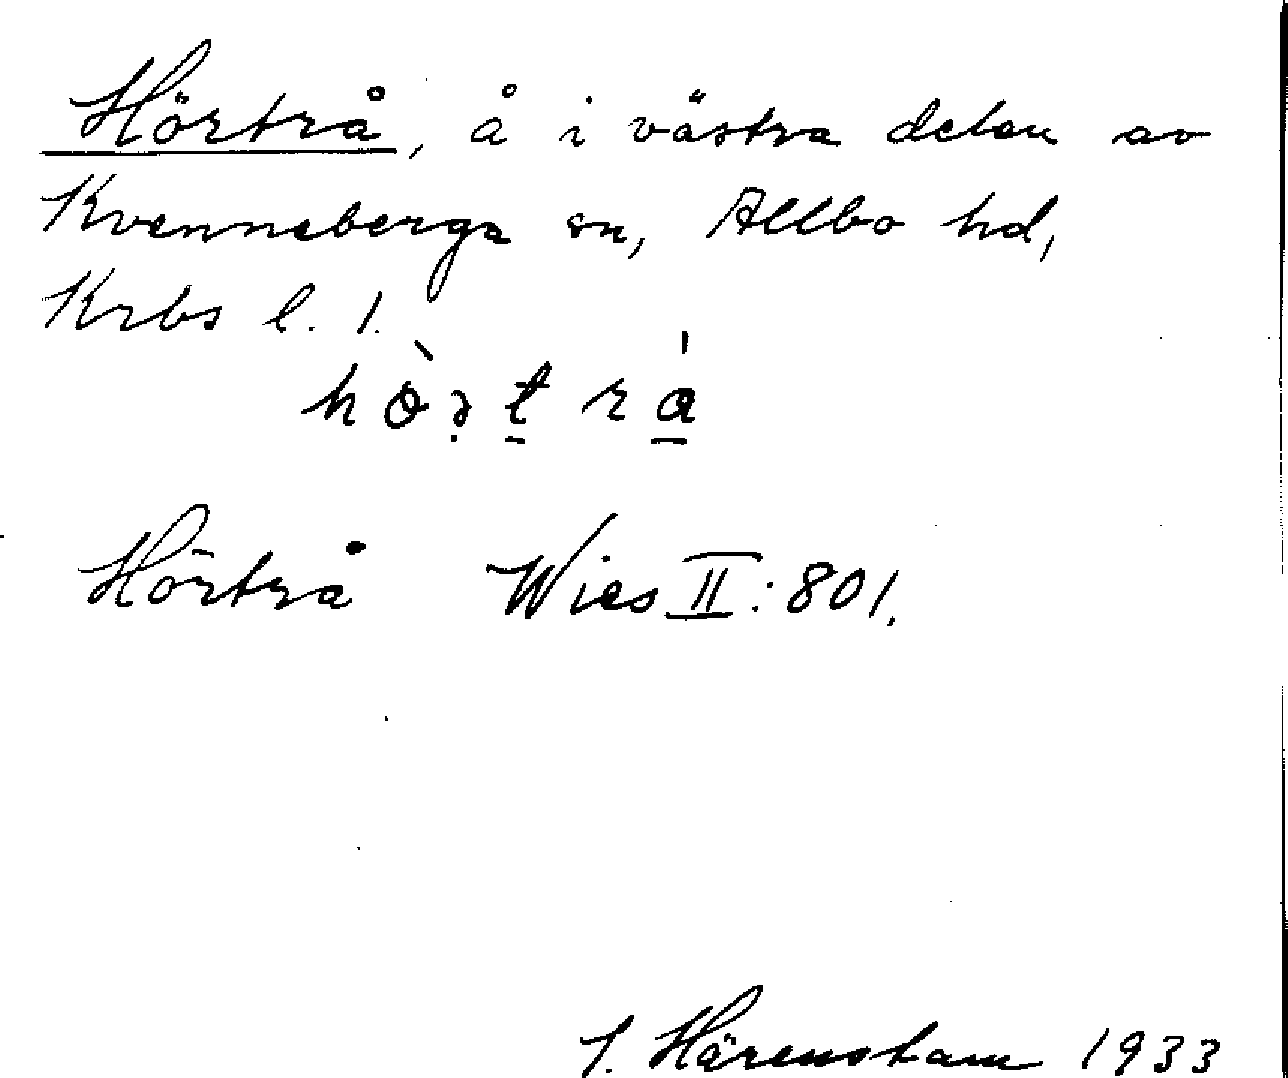 Hörtrå, å i västra delen av
Kvenneberga sn, Allbo hd,
Krbs l. 1.
Hörtrå Wies II: 801.
Härenstam 1933